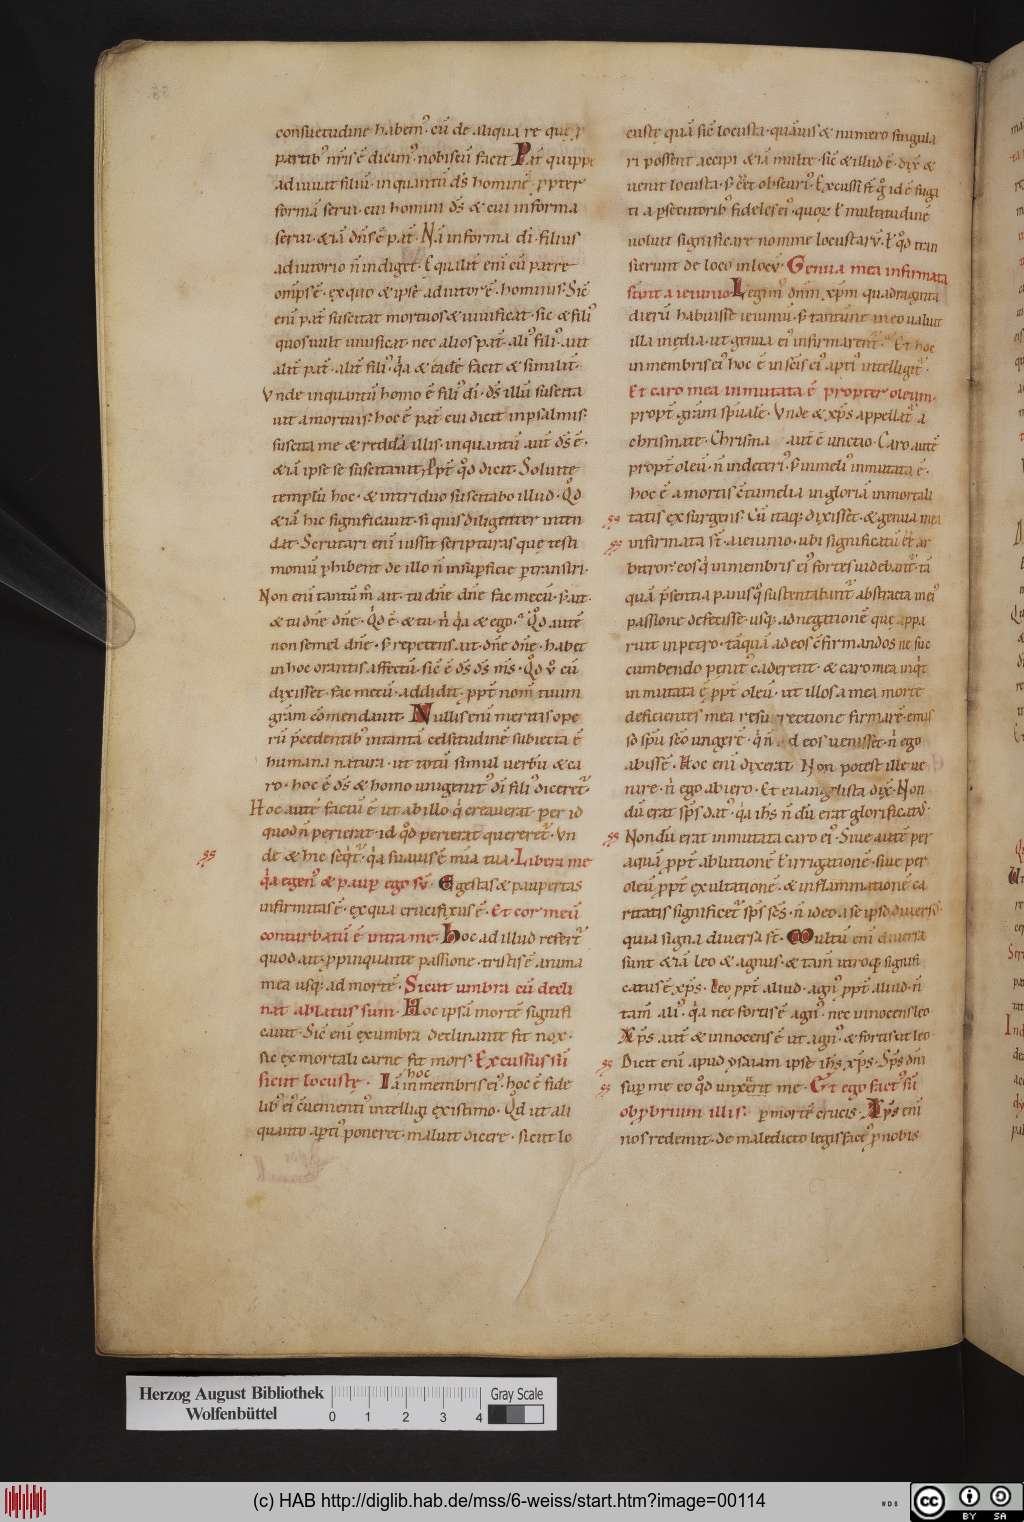 consuetudine habem᷒· cū de aliqua re que p
partib᷒ nr̄is ē dicim᷒· nobiscū facit Pat̄ quippe
adiuuat filiū· inquantū ds̄ hominē· ꝓpter
formā serui· cui homini ds̄ & cui informa
serui· &iā dn̄s ē pat̄· Nā informa di· filius
adiutorio n̄ indiget· Equalit̄ eni cū patre
omps ē· ex quo & ipse adiutor ē· hominis· Sic̄
eni pat̄ suscitat mortuos & uiuificat· sic & fili᷒
quos uult uiuificat· nec alios pat̄· ali᷒ fili᷒· aut
alit̄ pat̄· alit̄ fili᷒· q̇a & eadē facit & similit̄·
Vnde inquantū homo ē fili᷒ di· ds̄ illū suscita
uit a mortuis· hoc ē pat̄ cui dicit inpsalmis·
suscita me & reddā illis· inquantū aut̄ ds̄ ē·
&iā ipse se suscitauit· ꝓpt̄ qd̄ dicit· Soluite
templū hoc· & intriduo suscitabo illud· Qd̄
&iā hic significauit· si quis diligenter inten
dat· Scrutari eni iussit scripturas que testi
moniū phibent de illo n̄ insupficie ptransiri·
Non eni tantū m̄ ait· tu dn̄e dn̄e fac mecū· s; ait·
& tu dn̄e dn̄e· Qd̄ ē· & tu· n̄ q̇a & ego· Qd̄ autē
non semel dn̄e· s; repetens ait· dn̄e dn̄e· habet
in hoc orantis affectū· sic̄ ē ds̄ ds̄ m̄s· Qd̄ ū cū
dixisset· fac mecū· addidit· ꝓpt̄ nom̄ tuum
grām cōmendauit· Nullis eni meritis ope
rū p̄cedentib᷒ intantā celsitudinē subiecta ē
humana natura· ut totū simul uerbū & ca
ro· hoc ē ds̄ & homo unigenit᷒ di fili᷒ diceret᷒
Hoc autē factū ē ut ab illo q̇ creauerat· per id
quod n̄ perierat· id qd̄ perierat quereret᷒· Vn
de & hic seqt᷒· q̇a suauis ē mīa tua· Libera me
q̇a egen᷒ & paup ego sū· Egestas & paupertas
infirmitas ē· ex qua crucifixus ē· Et cor meū
conturbatū ē intra me· Hoc ad illud refert᷒
quod ait· ꝓpinquante passione· tristis ē anima
mea usq; ad mortē· Sicut umbra cū decli
nat ablatus sum· Hoc ipsā mortē signifi
cauit· Sic̄ eni ex umbra declinante fit nox·
sic ex mortali carne fit mors· Excussus sū
sicut locuste· Iā hoc inmembris ei᷒· hoc ē fide
lib᷒ ei᷒ c̄uenienti᷒ intelligi existimo· Qd̄ ut ali
quanto apti᷒ poneret· maluit dicere· sicut lo
custe quā sic̄ locusta· quāuis & numero singula
ri possent accipi &iā multe· sic̄ & illud ē· dix̄ &
uenit locusta· s; c̄et obscuri᷒· Excussi st̄ g̊ id ē fuga
ti a psecutorib᷒ fideles ei᷒· quoꝝ ł multitudinē
uoluit significare nomine locustarū· ł qd̄ tran
sierunt de loco in locū· Genua mea infirmata
sunt a ieiunio· Legim᷒ dn̄m xp̄m quadraginta
dierū habuisse ieiuniū· s; tantūne in eo ualuit
illa inedia· ut genua ei᷒ infirmarent᷒· Et hoc
in membris ei᷒ hoc ē in sc̄is ei᷒ apti᷒ intelligit᷒·
Et caro mea inmutata ē propter oleum·
propt̄ grām spūalē· Vnde & xp̄s appellat᷒ a
chrismate· Chrisma aut̄ ē unctio· Caro autē
propt̄ oleū· n̄ indeteri᷒· s; inmeli᷒ inmutata ē·
hoc ē a mortis c̄tumelia in gloriā inmortali
tatis exsurgens· Cū itaq; dixisset· & genua mea
infirmata st̄· a ieiunio· ubi significatū ēē ar
bitror· eos q̇ in membris ei᷒ fortes uidebant᷒· tā
quā p̄sentia panis q̊ sustentabunt᷒ abstracta mei᷒
passione defecisse· usq; ad negationē que appa
ruit in petro· tāquā ad eos c̄firmandos ne suc
cumbendo penit᷒ caderent· & caro mea inqt̄
inmutata ē ꝓpt̄ oleū· ut illos a mea morte
deficientes mea resurrectione firmarē· emis
so spū sc̄o ungerē· q̇ n̄ ad eos uenisset· n̄ ego
abissē· Hoc eni dixerat· Non potest ille ue
nire· n̄ ego abiero· Et euangelista dix̄· Non
dū erat sps̄ dat᷒· q̇a ihs̄ n̄ dū erat glorificat᷒·
Nondū erat inmutata caro ei᷒· Siue autē per
aquā ꝓpt̄ ablutionē ł irrigationē· siue per
oleū ꝓpt̄ exultationē· & inflammationē ca
ritatis significet᷒ sps̄ sc̄s· n̄ ideo a se ipso diuers᷒
quia signa diuersa st̄· Multū eni diuersa
sunt &iā leo & agnus· & tam̄ utroq; signifi
catus ē xp̄s· Leo ꝓpt̄ aliud· agn᷒ ꝓpt̄ aliud· n̄
tam̄ ali᷒· q̇a nec fortis ē agn᷒· nec innocens leo
Xp̄s aut̄ & innocens ē ut agn᷒· & fortis ut leo
Dicit eni apud ysaiam ipse ihs̄ xp̄s· Sps̄ dn̄i
sup me eo qd̄ unxerit me· Et ego fact᷒ sū
obprbrium illis· p mortē crucis· Xp̄s eni
nos redemit· de maledicto legis fact᷒ p nobis
Herzog August Bibliothek
Wolfenbüttel
0 1 2 3 4
Gray Scale
(c) HAB http://diglib.hab.de/mss/6-weiss/start.htm?image=00114
WDB
cc
BY SA